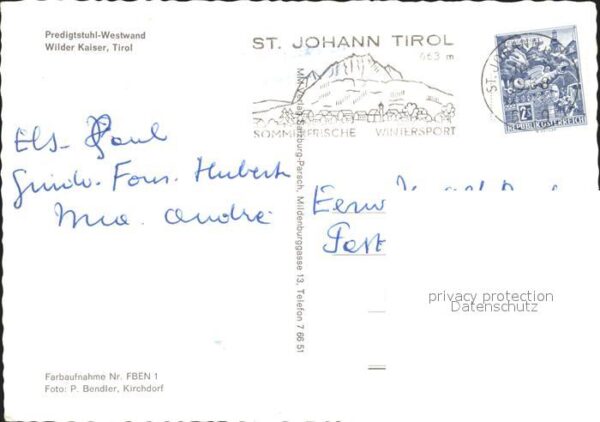 Predigtstuhl-Westwand
Wilder Kaiser, Tirol
ST. JOHANN TIROL
663 m
SOMMERFRISCHE WINTERSPORT
ST. JOHANN
2S
REPUBLIK ÖSTERREICH
Els- Paul
Guido. Fons. Hubert
Mia. André
MM-Verlag, Salzburg-Parsch, Mildenburggasse 13, Telefon 7 66 51
privacy protection
Datenschutz
Farbaufnahme Nr. FBEN 1
Foto: P. Bendler, Kirchdorf